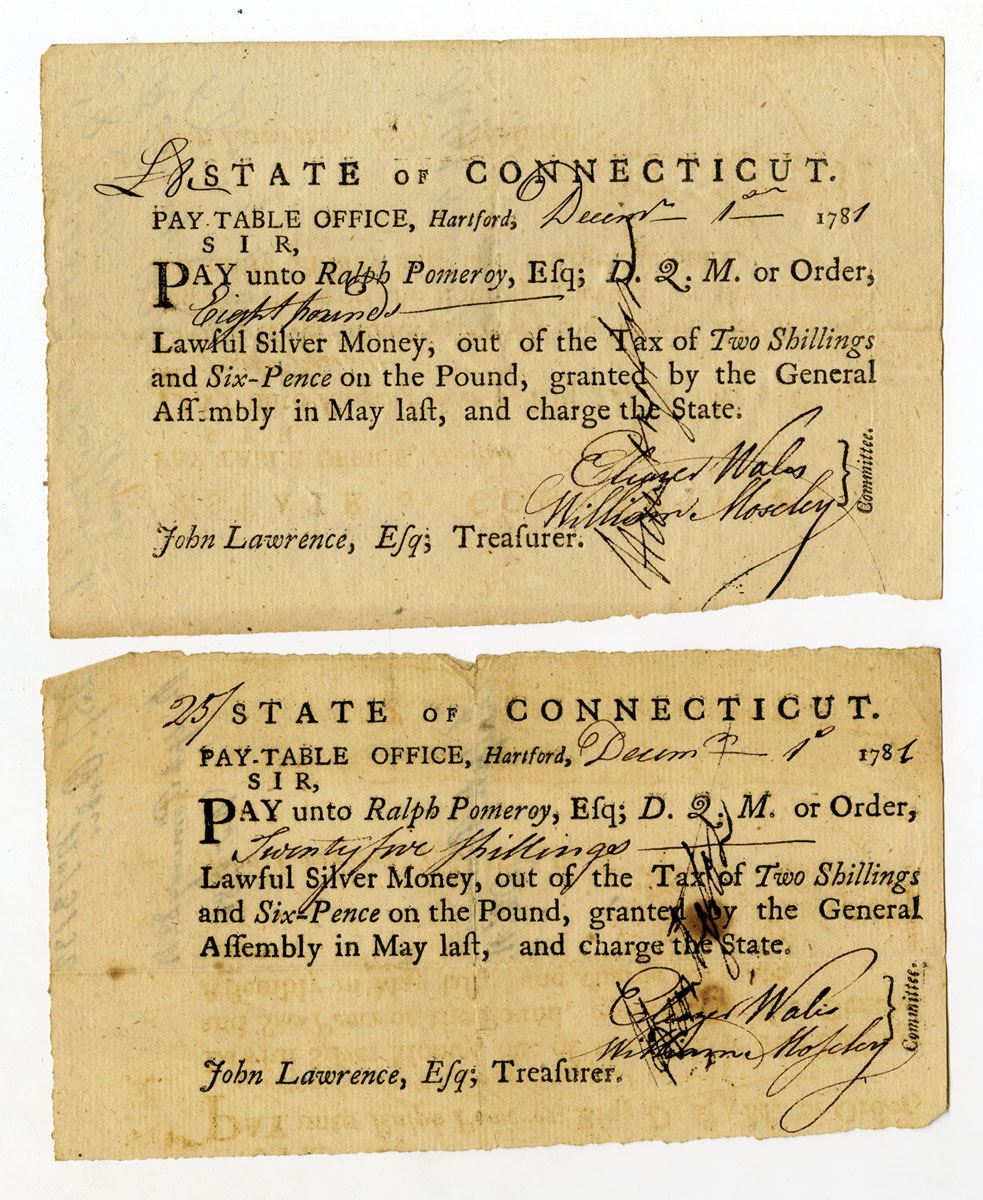 £8 STATE OF CONNECTICUT.
PAY-TABLE OFFICE, Hartford, Decemr 1st 1781
SIR,
PAY unto Ralph Pomeroy, Eſq; D. Q. M. or Order,
Eight pounds
Lawful Silver Money, out of the Tax of Two Shillings
and Six-Pence on the Pound, granted by the General
Aſſembly in May laſt, and charge the State.
Eliezer Wales
William Moseley
Committee.
John Lawrence, Eſq; Treaſurer.
25/ STATE OF CONNECTICUT.
PAY-TABLE OFFICE, Hartford, Decemr 1st 1781
SIR,
PAY unto Ralph Pomeroy, Eſq; D. Q. M. or Order,
Twenty five ſhillings
Lawful Silver Money, out of the Tax of Two Shillings
and Six-Pence on the Pound, granted by the General
Aſſembly in May laſt, and charge the State.
Eliezer Wales
William Moſeley
Committee.
John Lawrence, Eſq; Treaſurer.